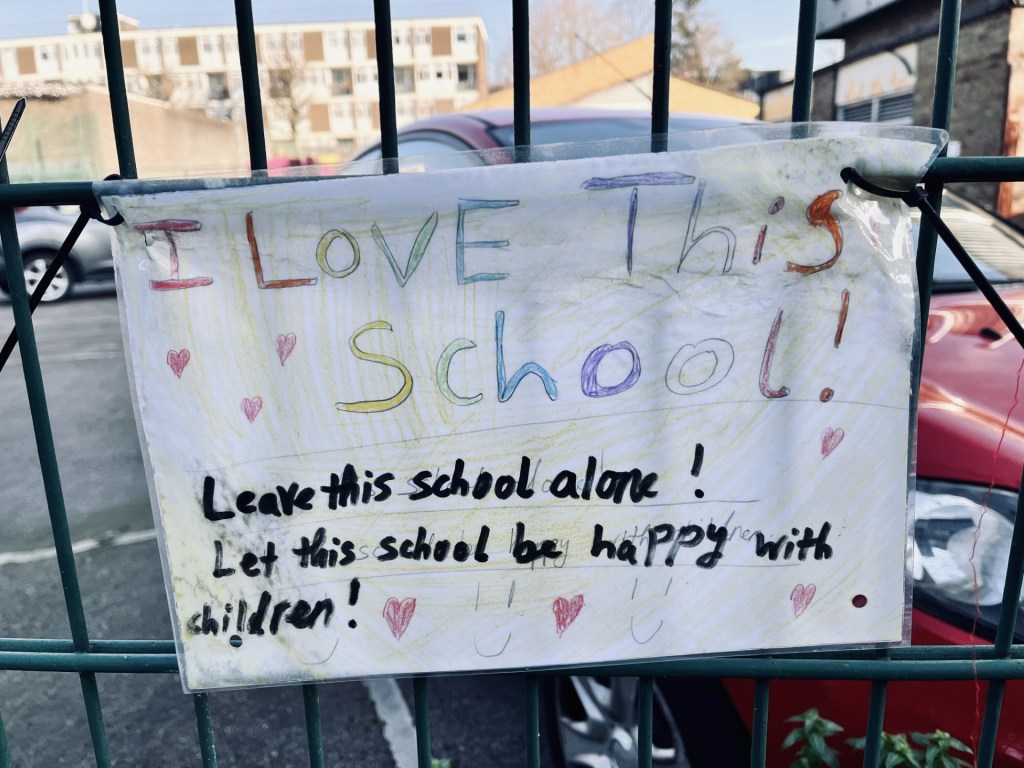 I LOVE This
School!
Leave this school alone!
Let this school be happy with
children!